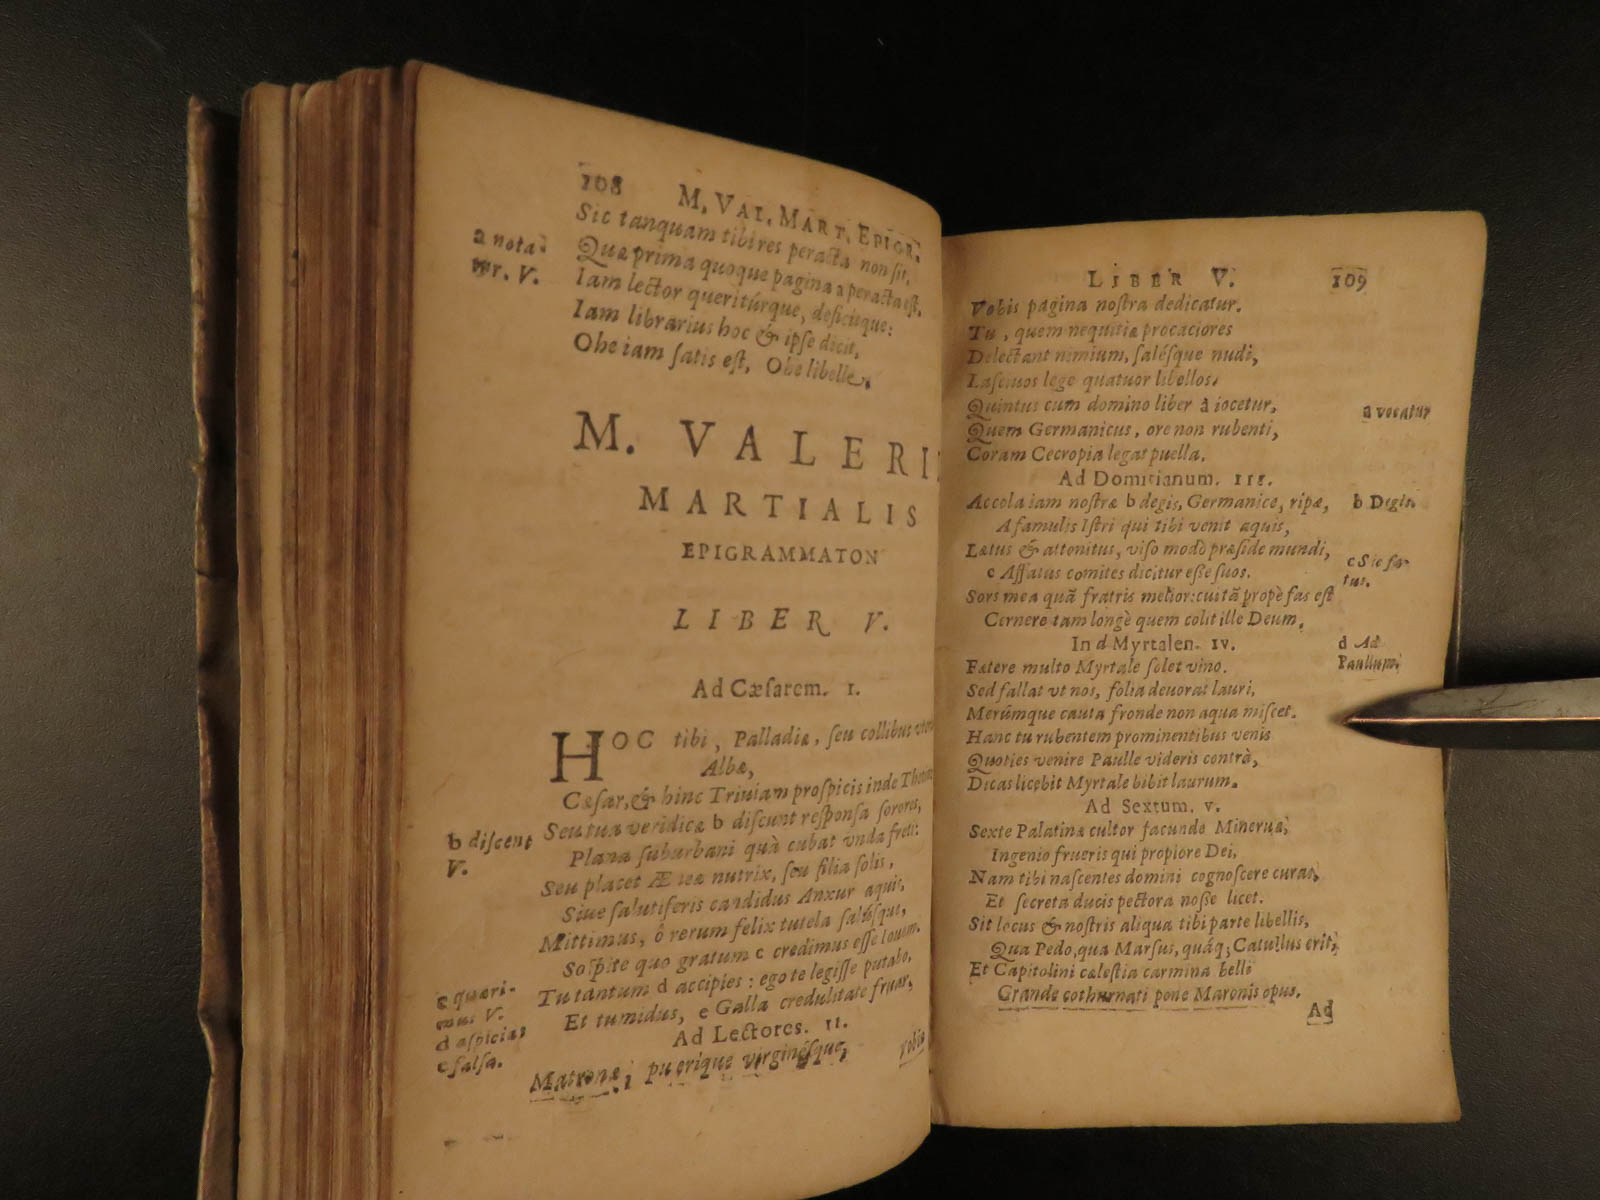 108 M. VAL. MART. EPIGR.
Sic tanquam tibi res peracta non sit,
Quæ prima quoque pagina a peracta est.
a nota-
tur. V.
Iam lector queritúrque, deficitque:
Iam librarius hoc & ipse dicit,
Ohe iam satis est, Ohe libelle.
M. VALERI
MARTIALIS
EPIGRAMMATON
LIBER V.
Ad Cæsarem. I.
HOC tibi, Palladiæ, seu collibus
Albæ,
Cæsar, & hinc Triuiam prospicis inde
Seu tuæ veridicæ b discunt responsa sorores,
b discent
V.
Plana suburbani quà cubat vnda freti:
Seu placet Æ eæ nutrix, seu filia solis,
Siue salutiferis candidus Anxur aquis,
Mittimus, ô rerum felix tutela salúsque,
Sospite quo gratum c credimus esse Iouem.
Tu tantum d accipies: ego te legisse putabo,
c quæri-
mus V.
d aspicias
e falsa.
Et tumidus, e Galla credulitate fruar.
Ad Lectores. II.
Matronæ, puerique virginésque,
vobis
LIBER V. 109
Vobis pagina nostra dedicatur.
Tu, quem nequitiæ procaciores
Delectant nimium, salésque nudi,
Lasciuos lege quatuor libellos.
Quintus cum domino liber a iocetur,
a vocatur
Quem Germanicus, ore non rubenti,
Coram Cecropia legat puella.
Ad Domitianum. III.
Accola iam nostræ b degis, Germanice, ripæ,
b Degis
A famulis Istri qui tibi venit aquis,
Lætus & attonitus, viso modò præside mundi,
c Affatus comites dicitur esse suos.
c Sic fa-
tus.
Sors mea quã fratris melior: cui tã propè fas est
Cernere tam longè quem colit ille Deum.
In d Myrtalen. IV.
d Ad
Paullum.
Fætere multo Myrtale solet vino.
Sed fallat vt nos, folia deuorat lauri,
Merúmque cauta fronde non aqua miscet.
Hanc tu rubentem prominentibus venis
Quoties venire Paulle videris contrà,
Dicas licebit Myrtale bibit laurum.
Ad Sextum. V.
Sexte Palatinæ cultor facunde Mineruæ,
Ingenio frueris qui propiore Dei,
Nam tibi nascentes domini cognoscere curas,
Et secreta ducis pectora nosse licet.
Sit locus & nostris aliqua tibi parte libellis,
Qua Pedo, qua Marsus, quáq; Catullus erit,
Et Capitolini cælestia carmina belli
Grande cothurnati pone Maronis opus.
Ad